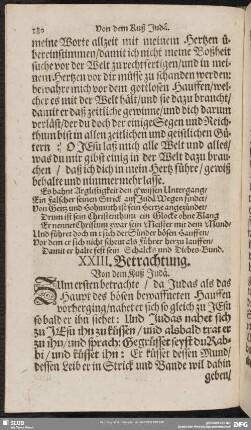 180 Von dem Kuß Judä.
meine Worte allzeit mit meinem Hertzen ü-
bereinstimmen/damit ich nicht meine Boßheit
suche vor der Welt zu rechtfertigen/und in mei-
nem Hertzen vor dir müsse zu schanden werden:
bewahre mich vor dem gottlosen Hauffen/wel-
cher es mit der Welt hält/und sie dazu braucht/
damit er daß zeitliche gewinne/und dich darum
verläßt/der du doch der einige Segen und Reich-
thum bist in allen zeitlichen und geistlichen Gü-
tern: O JEsu laß mich alle Welt und alles/
was du mir gibst einig in der Welt dazu brau-
chen/ daß ich dich in mein Hertz führe/ gewiß
behalte und nimmermehr lasse.
Es bahnt Arglistigkeit den gewissen Untergang/
Ein falscher seinen Strick auf Judä Wegen findet/
Von Geitz und Hohmuth ist sein Hertze angezündet/
Drum ist sein Christenthum ein Glocke ohne Klang
Er nennet Christum zwar sein Meister mit dem Mund
Und führet doch in sich der Sünder bösen Hauffen/
Vor dem er sich nicht scheut als führer herzu lauffen/
Damit er halte fest sein Schalcks- und Diebes-Bund.
XXIII. Betrachtung.
Von dem Kuß Judä.
Zum ersten betrachte/ da Judas als das
Haupt des bösen bewaffneten Hauffen
vorherging/nahet er sich so gleich zu JEsu
sobald er ihn siehet: Und Judas nahet sich
zu JEsu ihn zu küssen/ und alsbald trat er
zu ihm/und sprach: Gegrüsset seyst du Rab-
bi/ und küsset ihn: Er küsset dessen Mund/
dessen Leib er in Strick und Bande wil dahin
geben/